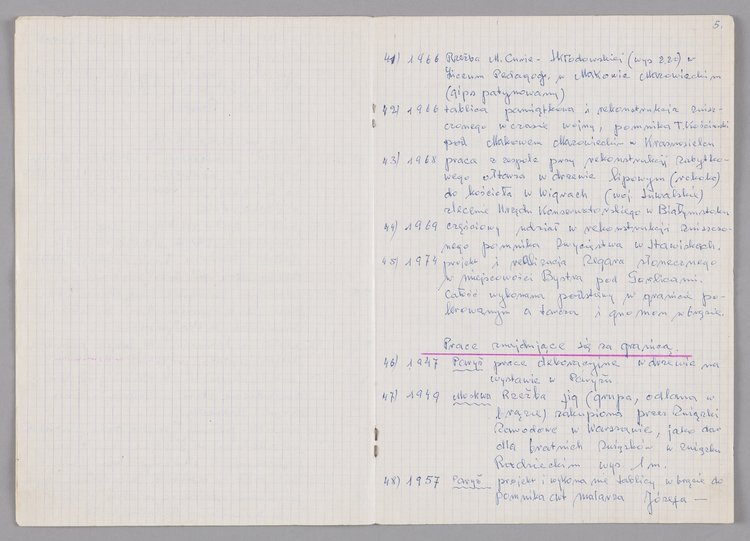 5.
41) 1966 Rzeźba M. Curie-Skłodowskiej (wys 2,20) w
Liceum Pedagog. w Makowie Mazowieckim
(gips patynowany)
42) 1966 tablica pamiątkowa i rekonstrukcja znisz-
czonego w czasie wojny, pomnika T. Kościuszki
pod Makowem Mazowieckim w Krasnosielcu
43) 1968 praca z zespole przy rekonstrukcji zabytko-
wego ołtarza w drzewie lipowym (rokoko)
do kościoła w Wigrach (woj Suwalskie)
zlecenie Urzędu Konserwatorskiego w Białymstoku
44) 1969 częściowy udział w rekonstrukcji zniszczo-
nego pomnika Zwycięstwa w Stawiskach.
45) 1974 projekt i realizacja Zegara słonecznego
w miejscowości Bystra pod Gorlicami.
Całość wykonana podstawy w granicie po-
lerowanym a tarcza i gnomon w brązie.
Prace znajdujące się za granicą.
46) 1947 Paryż prace dekoracyjne w drzewie na
wystawie w Paryżu
47) 1949 Moskwa Rzeźba fig (grupa, odlana w
brązie) zakupiona przez Związki
Zawodowe w Warszawie, jako dar
dla bratnich Związków w Związku
Radzieckim wys 1 m.
48) 1957 Paryż projekt i wykonanie tablicy w brązie do
pomnika art malarza Józefa —